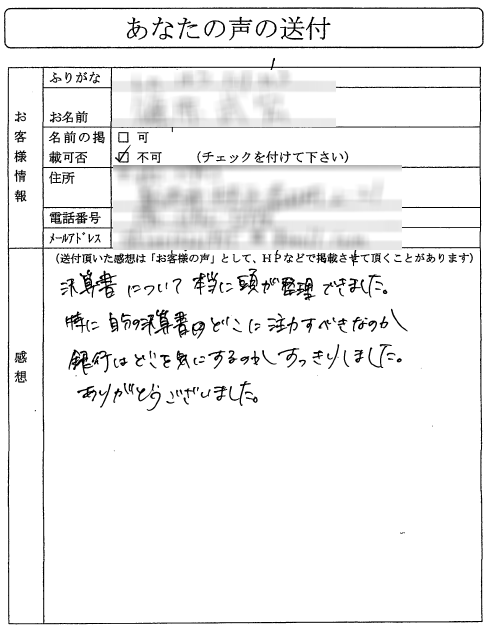 あなたの声の送付
お客様情報
ふりがな
お名前
名前の掲載可否
□ 可
☑ 不可 (チェックを付けて下さい)
住所
電話番号
ﾒｰﾙｱﾄﾞﾚｽ
感想
(送付頂いた感想は「お客様の声」として、HPなどで掲載させて頂くことがあります)
決算書について本当に頭が整理できました。
特に自分の決算書のどこに注力すべきなのか
銀行はどこを気にするのかすっきりしました。
ありがとうございました。